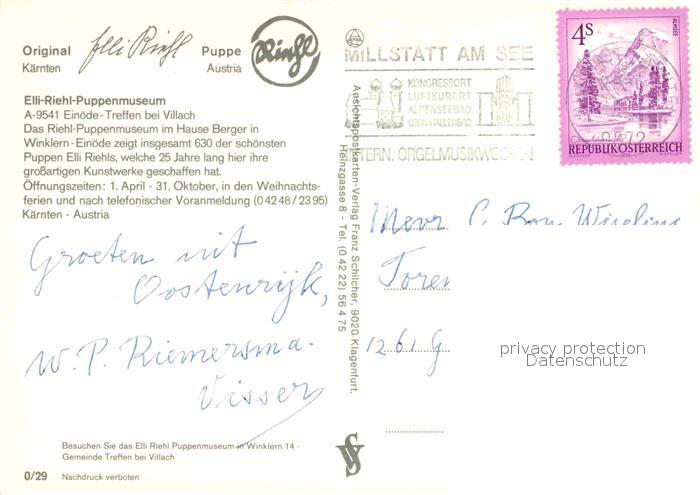 Original Elli Riehl Puppe Riehl
Kärnten Austria
Elli-Riehl-Puppenmuseum
A-9541 Einöde-Treffen bei Villach
Das Riehl-Puppenmuseum im Hause Berger in
Winklern-Einöde zeigt insgesamt 630 der schönsten
Puppen Elli Riehls, welche 25 Jahre lang hier ihre
großartigen Kunstwerke geschaffen hat.
Öffnungszeiten: 1. April - 31. Oktober, in den Weihnachts-
ferien und nach telefonischer Voranmeldung (0 42 48 / 23 95)
Kärnten - Austria
Groeten uit
Oostenrijk,
W. P. Riemersma.
Visser
Besuchen Sie das Elli Riehl Puppenmuseum in Winklern 14 -
Gemeinde Treffen bei Villach
0/29 Nachdruck verboten
Ansichtspostkarten-Verlag Franz Schilcher, 9020 Klagenfurt,
Heinzgasse 8 - Tel. (0 42 22) 56 4 75
MILLSTATT AM SEE
KONGRESSORT
LUFTKURORT
ALPENSEEBAD
OZON HALLENBAD
INTERN. ORGELMUSIKWOCHEN
4S
ALMSEE
9872
REPUBLIK ÖSTERREICH
Mevr C.
Toren
1261 G
privacy protection
Datenschutz